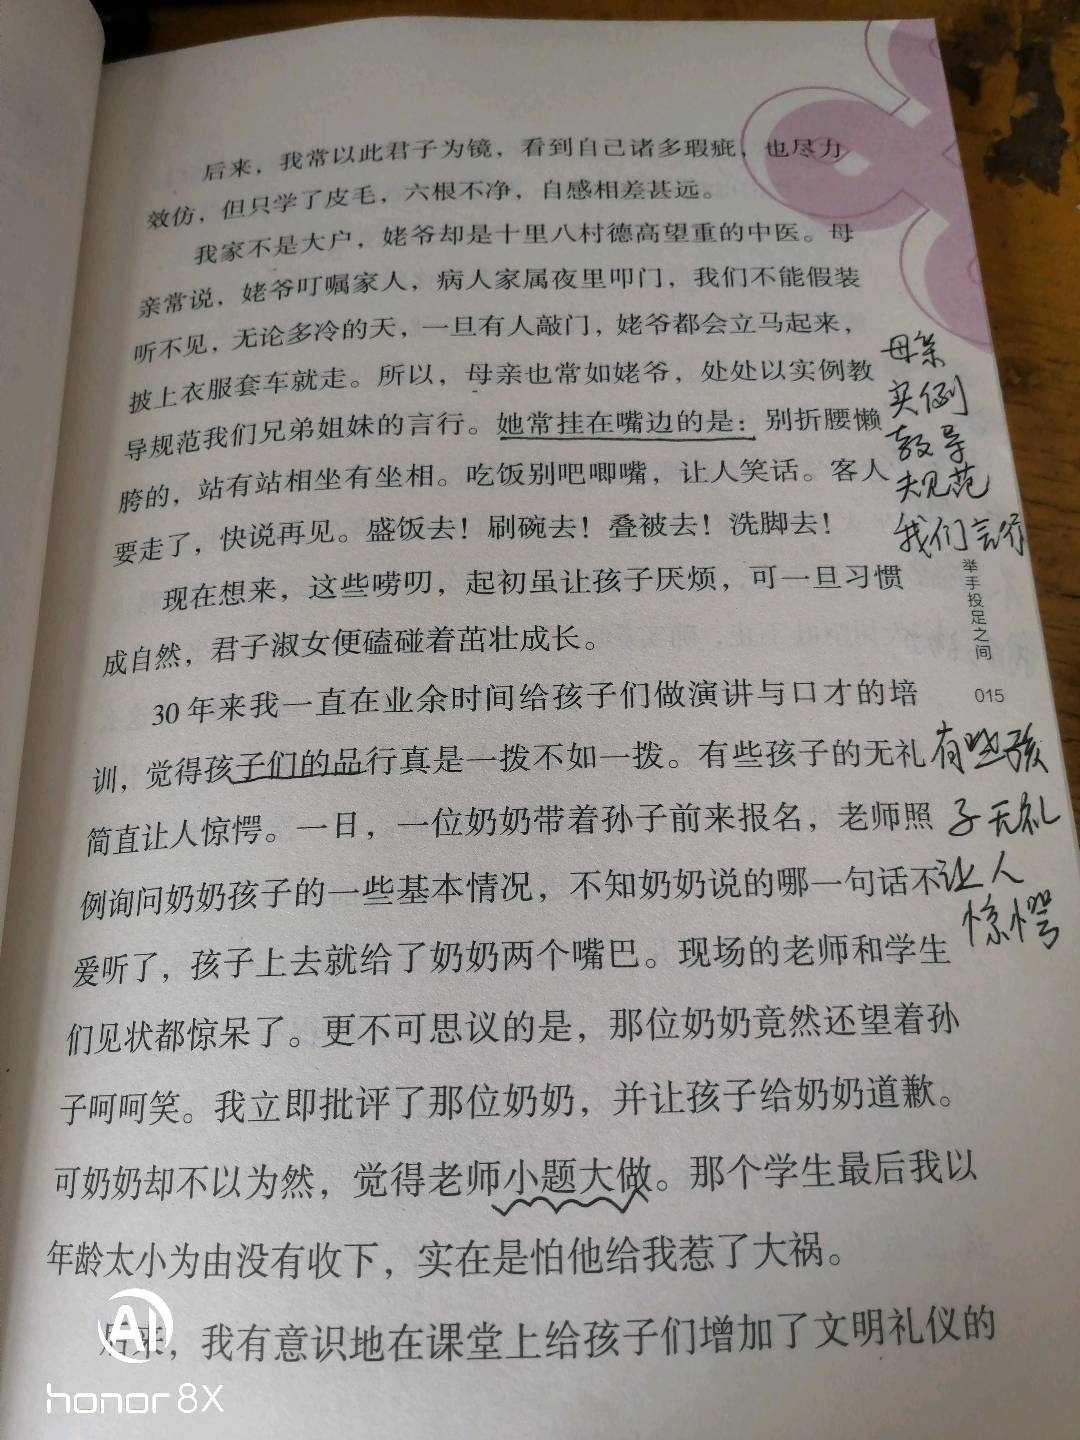 后来，我常以此君子为镜，看到自己诸多瑕疵，也尽力
效仿，但只学了皮毛，六根不净，自感相差甚远。
我家不是大户，姥爷却是十里八村德高望重的中医。母
亲常说，姥爷叮嘱家人，病人家属夜里叩门，我们不能假装
听不见，无论多冷的天，一旦有人敲门，姥爷都会立马起来，
披上衣服套车就走。所以，母亲也常如姥爷，处处以实例教
导规范我们兄弟姐妹的言行。她常挂在嘴边的是：别折腰懒
胯的，站有站相坐有坐相。吃饭别吧唧嘴，让人笑话。客人
要走了，快说再见。盛饭去！刷碗去！叠被去！洗脚去！
现在想来，这些唠叨，起初虽让孩子厌烦，可一旦习惯
成自然，君子淑女便磕碰着茁壮成长。
30年来我一直在业余时间给孩子们做演讲与口才的培
训，觉得孩子们的品行真是一拨不如一拨。有些孩子的无礼
简直让人惊愕。一日，一位奶奶带着孙子前来报名，老师照
例询问奶奶孩子的一些基本情况，不知奶奶说的哪一句话不
爱听了，孩子上去就给了奶奶两个嘴巴。现场的老师和学生
们见状都惊呆了。更不可思议的是，那位奶奶竟然还望着孙
子呵呵笑。我立即批评了那位奶奶，并让孩子给奶奶道歉。
可奶奶却不以为然，觉得老师小题大做。那个学生最后我以
年龄太小为由没有收下，实在是怕他给我惹了大祸。
后来，我有意识地在课堂上给孩子们增加了文明礼仪的
母亲
实例
教导
规范
我们言行
举手投足之间
015
有些孩
子无礼
让人
惊愕
AI
honor 8X